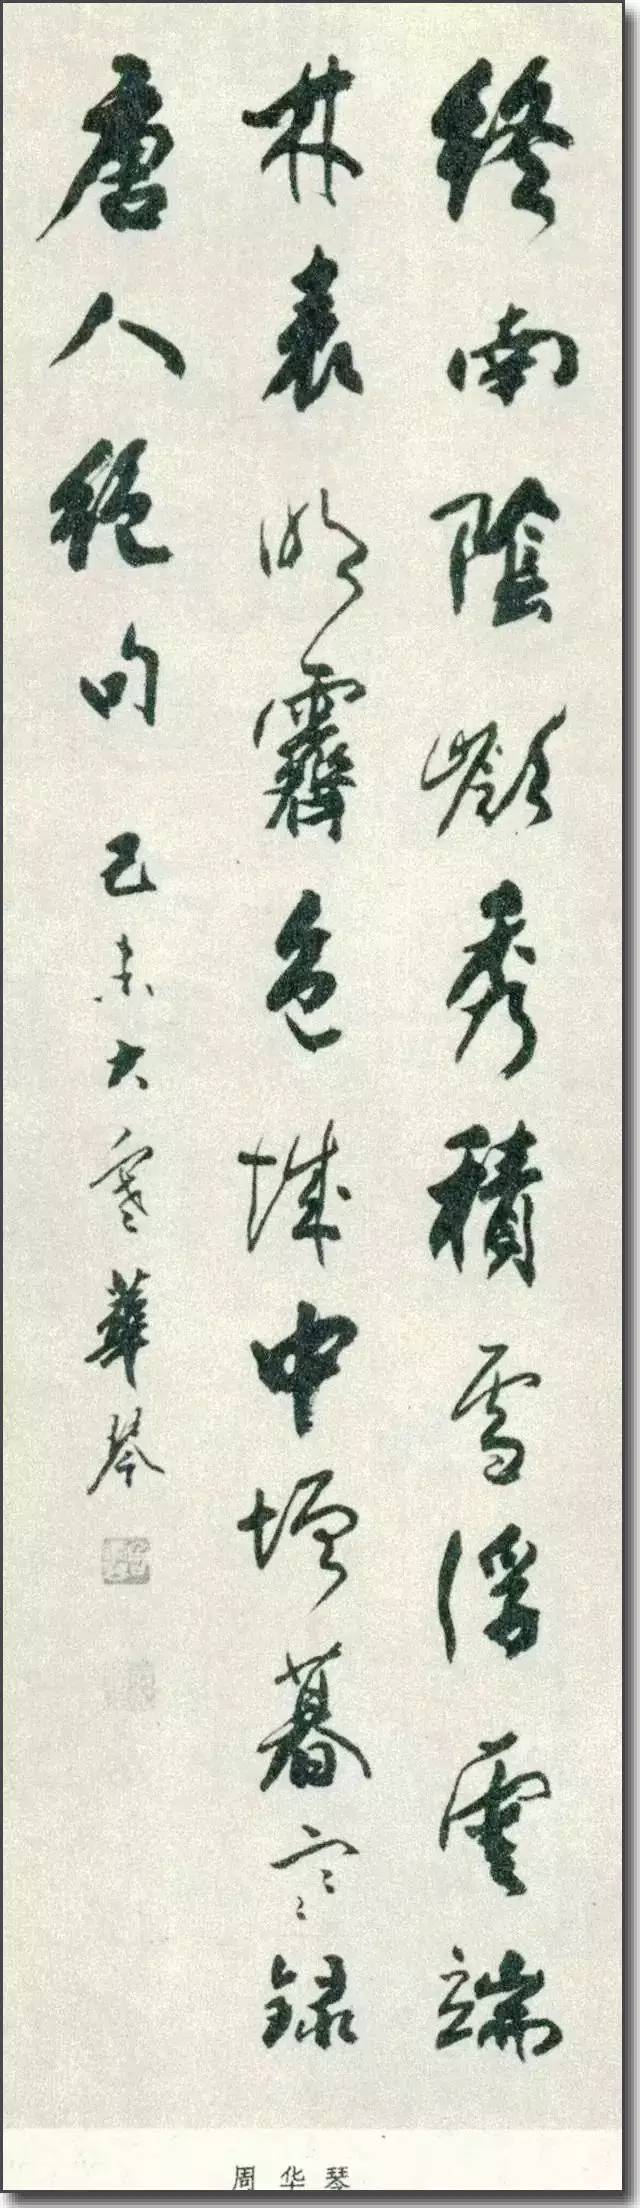 終南陰嶺秀積雪浮雲端
林表明霽色城中增暮寒錄
唐人絕句己未大寒華琴
周华琴